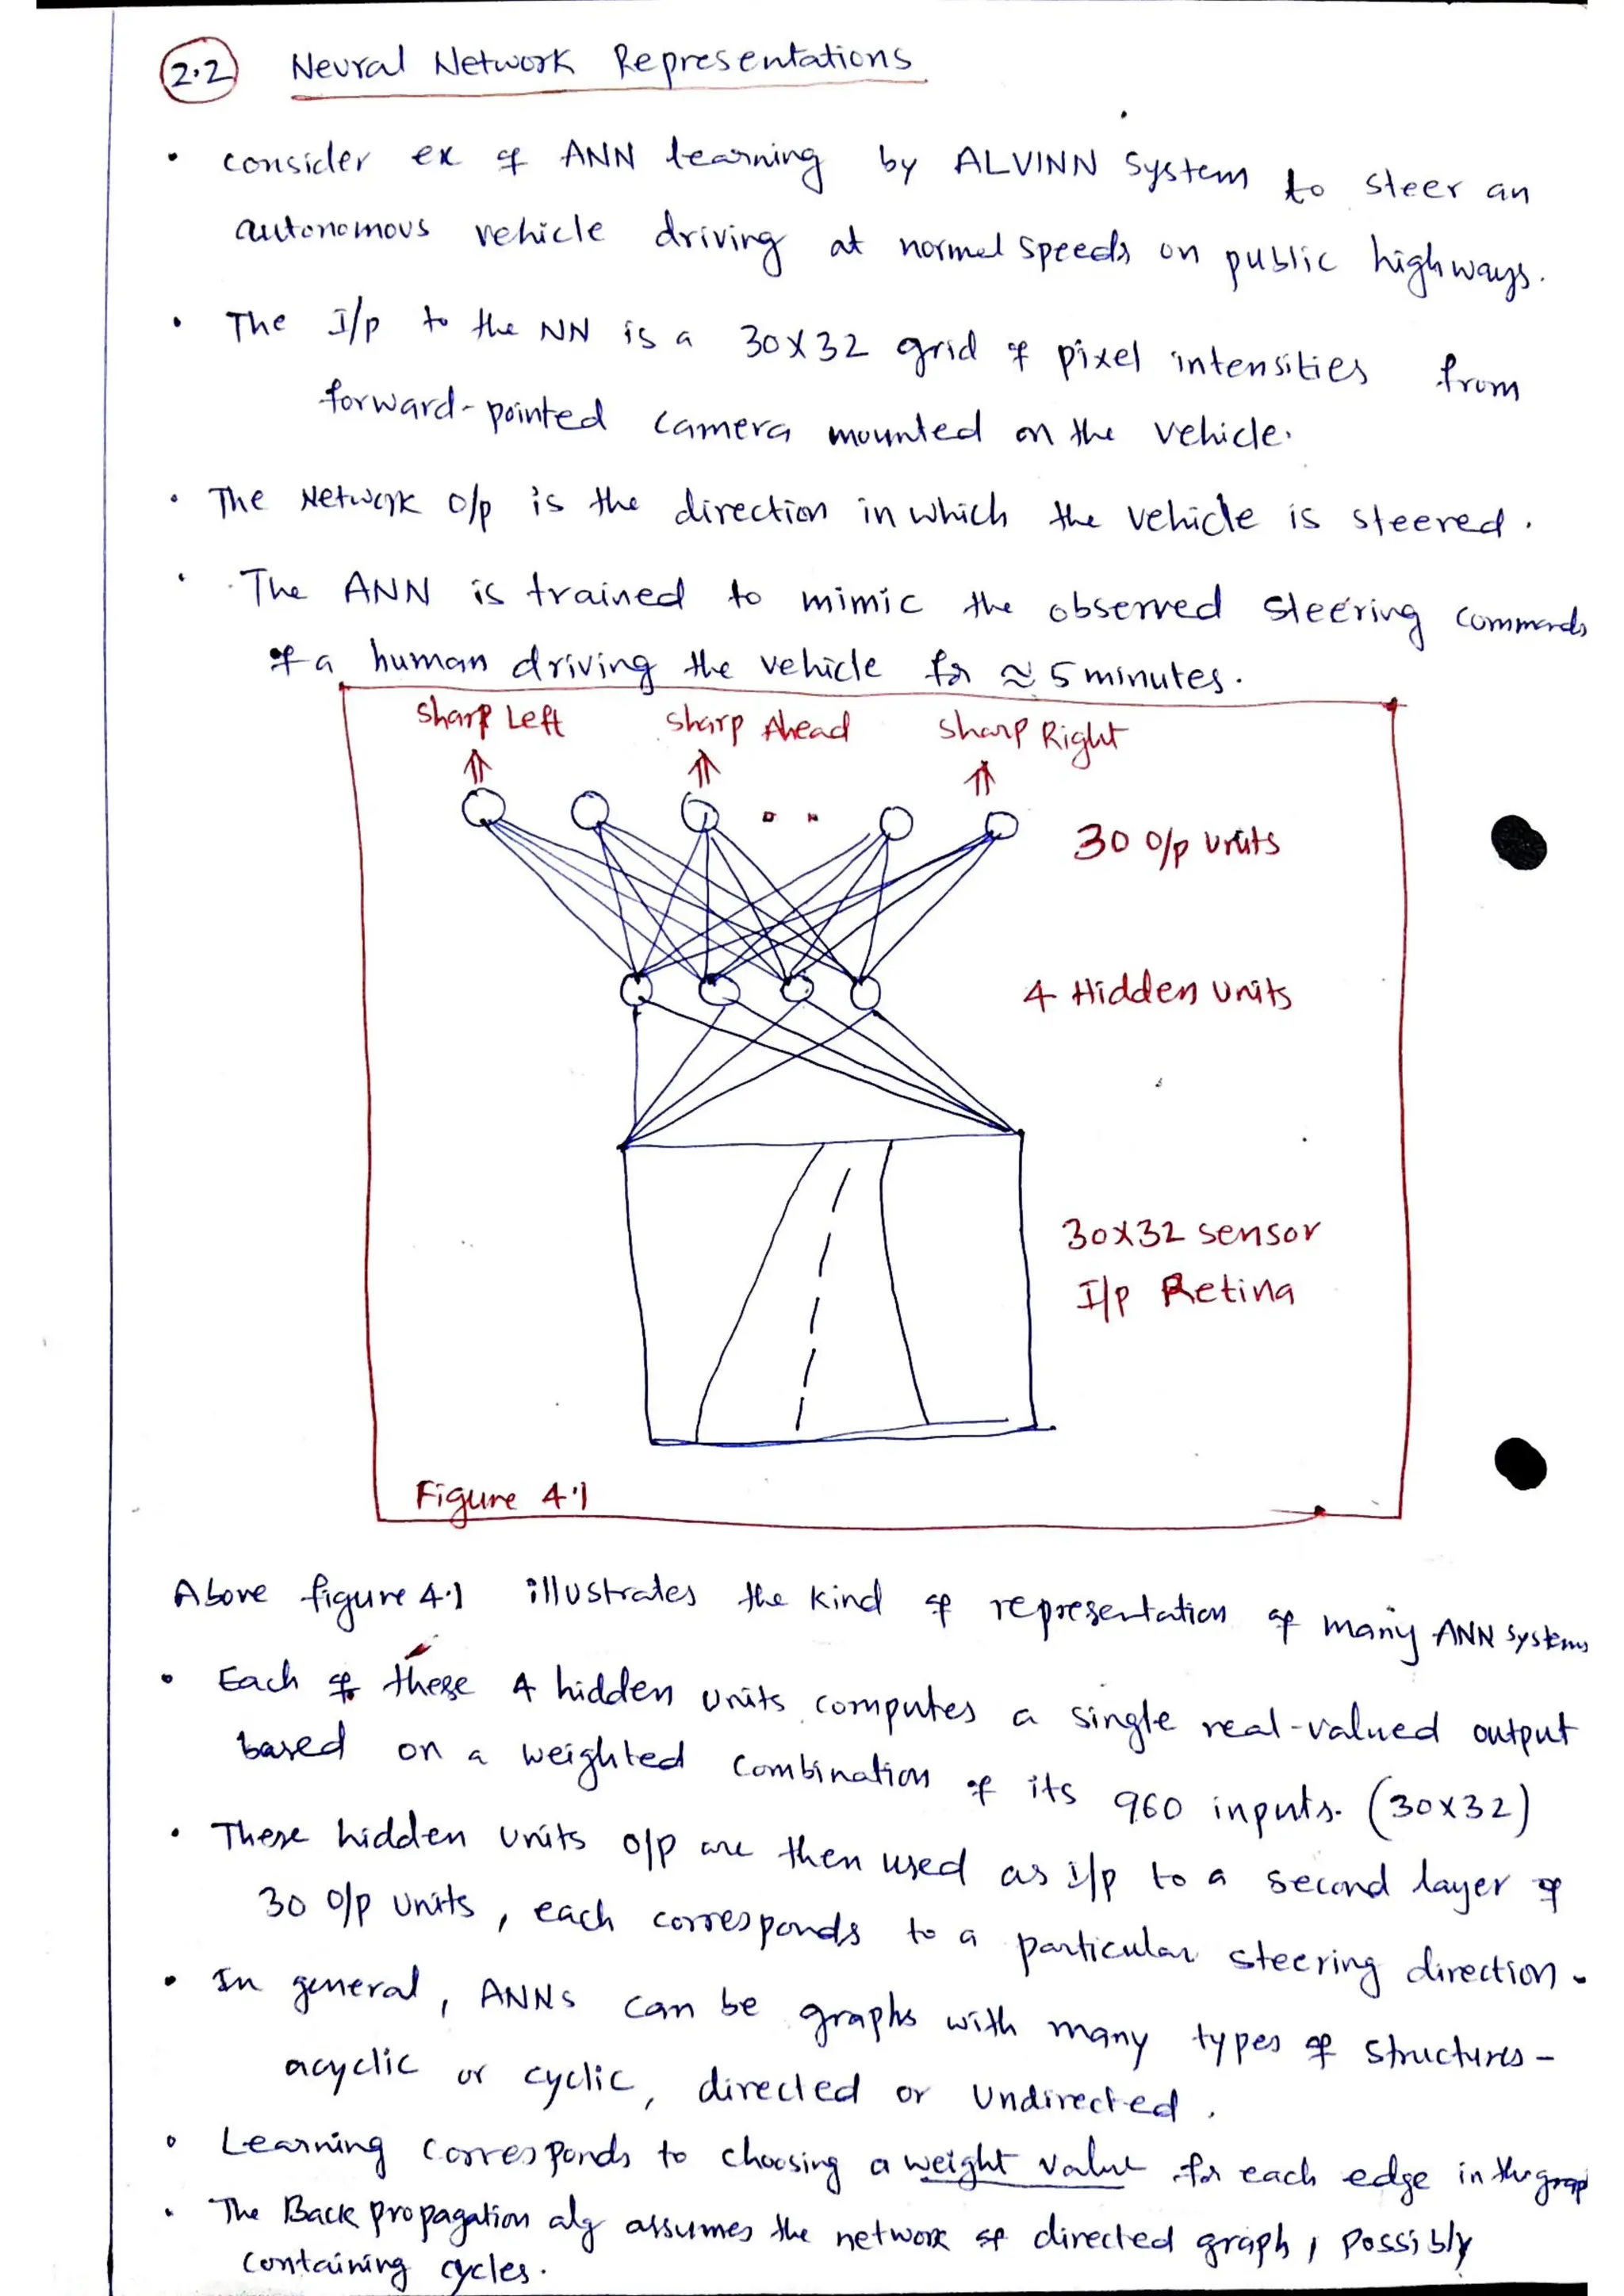 2.2 Neural Network Representations
• consider ex of ANN learning by ALVINN System to steer an
autonomous vehicle driving at normal speeds on public highways.
• The I/p to the NN is a 30X32 grid of pixel intensities from
forward-pointed camera mounted on the vehicle.
• The Network o/p is the direction in which the vehicle is steered.
• The ANN is trained to mimic the observed steering commands
of a human driving the vehicle for ≈ 5 minutes.
Sharp Left Sharp Ahead Sharp Right
30 o/p units
4 Hidden units
30X32 sensor
I/p Retina
Figure 4.1
Above figure 4.1 illustrates the kind of representation of many ANN systems
• Each of these 4 hidden units computes a single real-valued output
based on a weighted combination of its 960 inputs. (30x32)
• These hidden units o/p are then used as i/p to a second layer of
30 o/p units, each corresponds to a particular steering direction.
• In general, ANNs can be graphs with many types of structures-
acyclic or cyclic, directed or undirected.
• Learning corresponds to choosing a weight value for each edge in the grap
• The Back propagation alg assumes the network of directed graph, possibly
containing cycles.